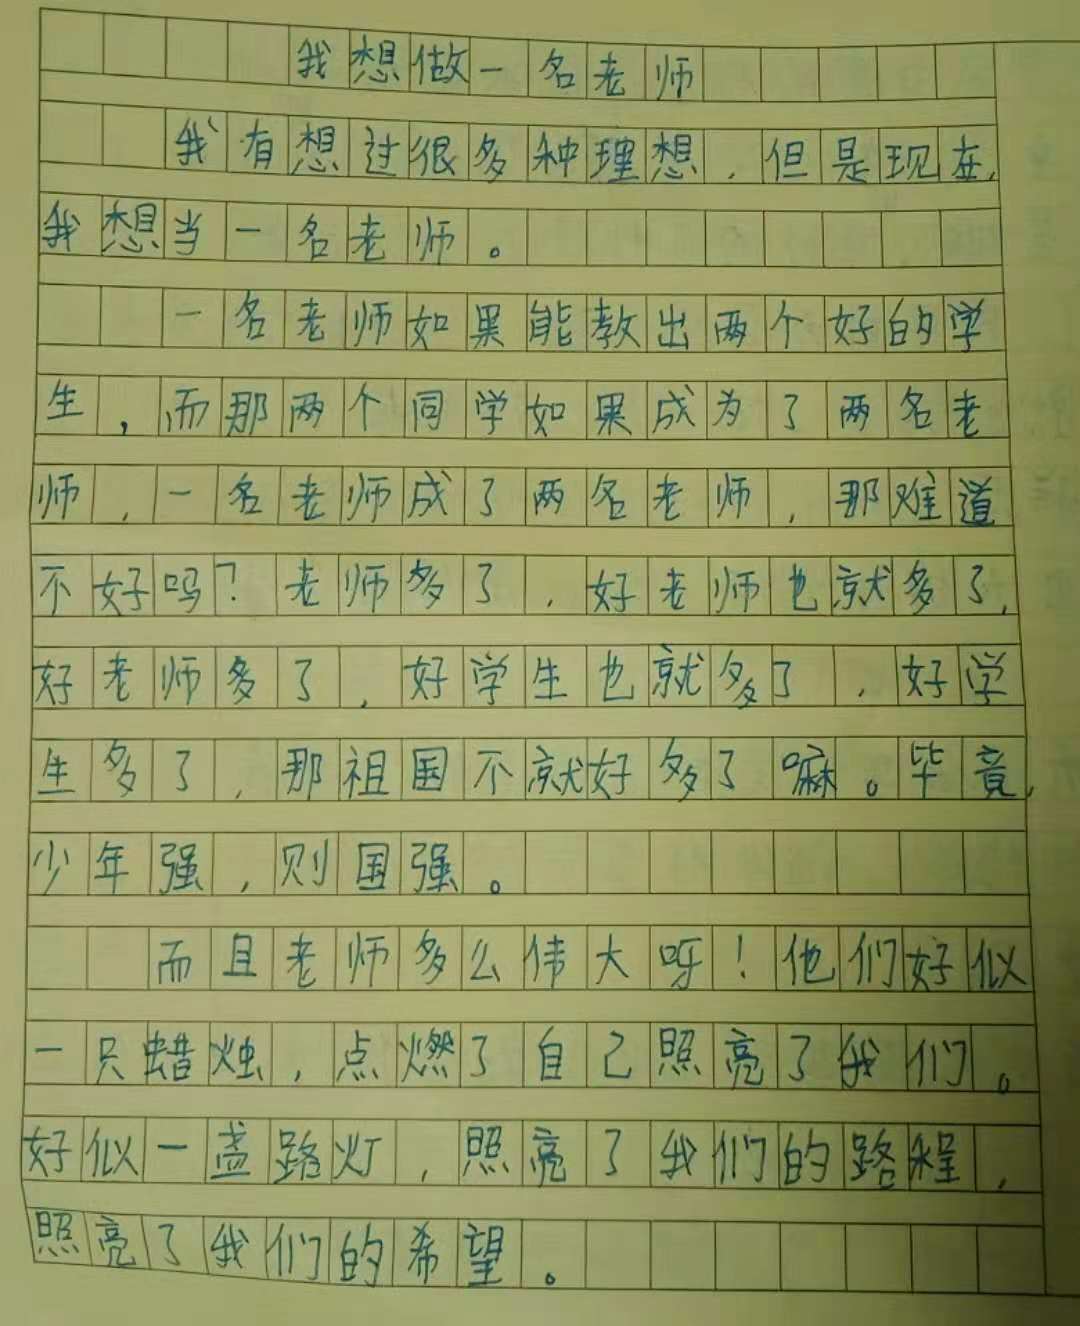 我想做一名老师
我有想过很多种理想，但是现在，
我想当一名老师。
一名老师如果能教出两个好的学
生，而那两个同学如果成为了两名老
师，一名老师成了两名老师，那难道
不好吗？老师多了，好老师也就多了，
好老师多了，好学生也就多了，好学
生多了，那祖国不就好多了嘛。毕竟，
少年强，则国强。
而且老师多么伟大呀！他们好似
一只蜡烛，点燃了自己照亮了我们。
好似一盏路灯，照亮了我们的路程，
照亮了我们的希望。